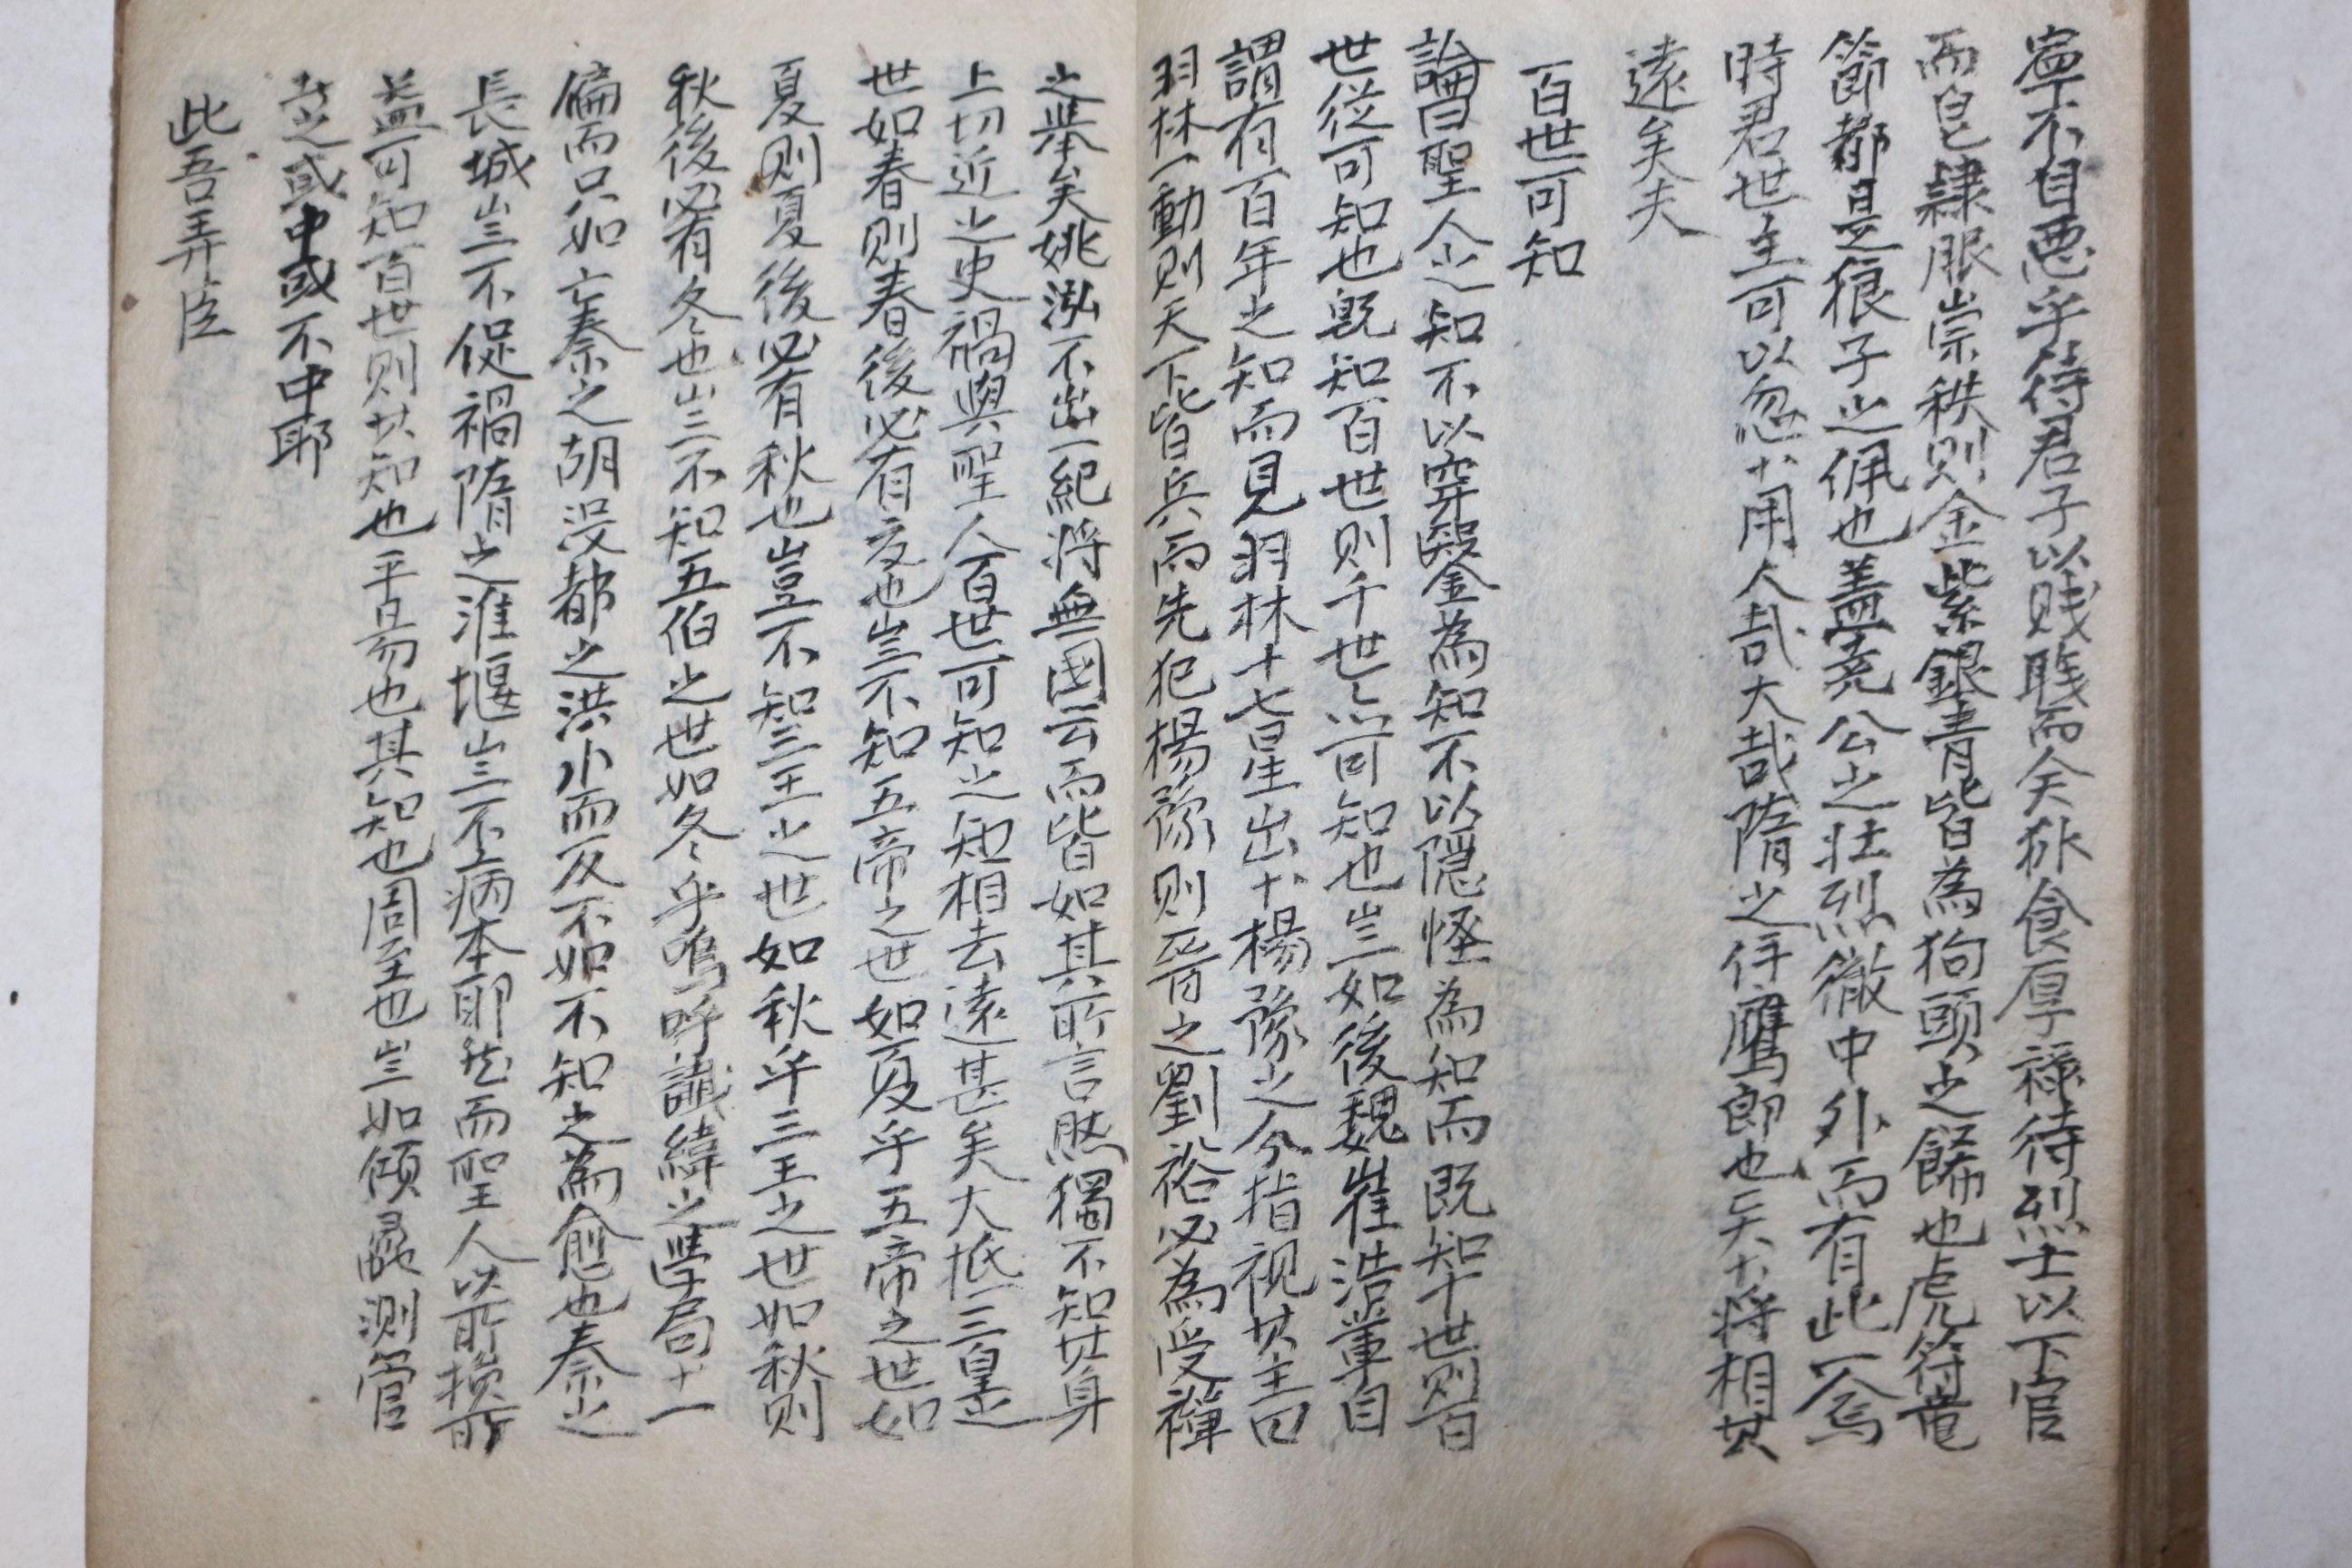 寧不自惡乎待君子以賤職而矣狀食厚祿待烈士以下官
而皂隸服崇秩則金紫銀青皆為狗頭之飾也虎符竜
節都是狼子之佩也蓋堯公之壯烈徹中外而有此一
時君世主可以忽於用人哉大哉隋之侍鷹郎也矣於將相其
遠矣夫
百世可知
論曰聖人之知不以穿鑿為知不以隱怪為知而既知十世則百
世從可知也既知百世則千世亦可知也豈如後魏崔浩輩自
謂有百年之知而見羽林十七星出於楊豫之今指視其主曰
羽林一動則天下皆兵而先犯楊豫則晉之劉裕必為受禪
之舉矣姚泓不出一紀將無國云而皆如其所言然獨不知其身
上切近之史禍與聖人百世可知之知相去遠甚矣大抵三皇之
世如春則春後必有夏也豈不知五帝之世如夏乎五帝之世如
夏則夏後必有秋也豈不知三王之世如秋乎三王之世如秋則
秋後必有冬也豈不知五伯之世如冬乎嗚呼讖緯之學局於一
偏而只如亡秦之胡沒都之洪小而反不如不知之為愈也秦之
長城豈不促禍隋之淮堰豈不病本耶然而聖人以所損所
益可知百世則其知也平易也其知也周至也豈如傾蠡測管
者之或中或不中耶
此吾弄臣